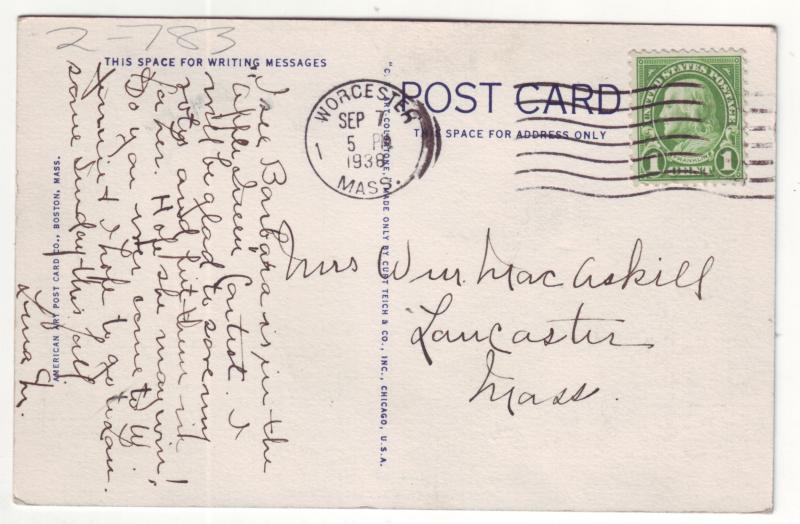 2-783
THIS SPACE FOR WRITING MESSAGES
I see Barbara is in the
apple Queen Contest. I
will be glad to save my
votes and put them in
for her. Hope she may win!
Do you ever come to W.
Minnie & I hope to go to Lan.
some Sunday this fall
Lena M.
AMERICAN ART POST CARD CO., BOSTON, MASS.
WORCESTER
SEP 7
5 PM
1938
MASS.
1
"C. T. ART-COLORTONE," MADE ONLY BY CURT TEICH & CO., INC., CHICAGO, U.S.A.
POST CARD
THIS SPACE FOR ADDRESS ONLY
UNITED STATES POSTAGE
FRANKLIN
1 CENT 1
Mrs Wm. MacAskill
Lancaster
Mass.